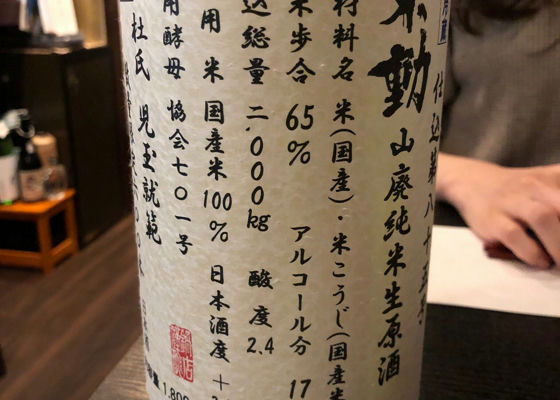 仕込第八十五号
不動 山廃純米生原酒
材料名 米(国産)・米こうじ(国産米
米歩合 65% アルコール分 17
込総量 二、000kg 酸度 2.4
用米 国産米100% 日本酒度 +
用酵母 協会七〇一号
杜氏 児玉就範
1,800